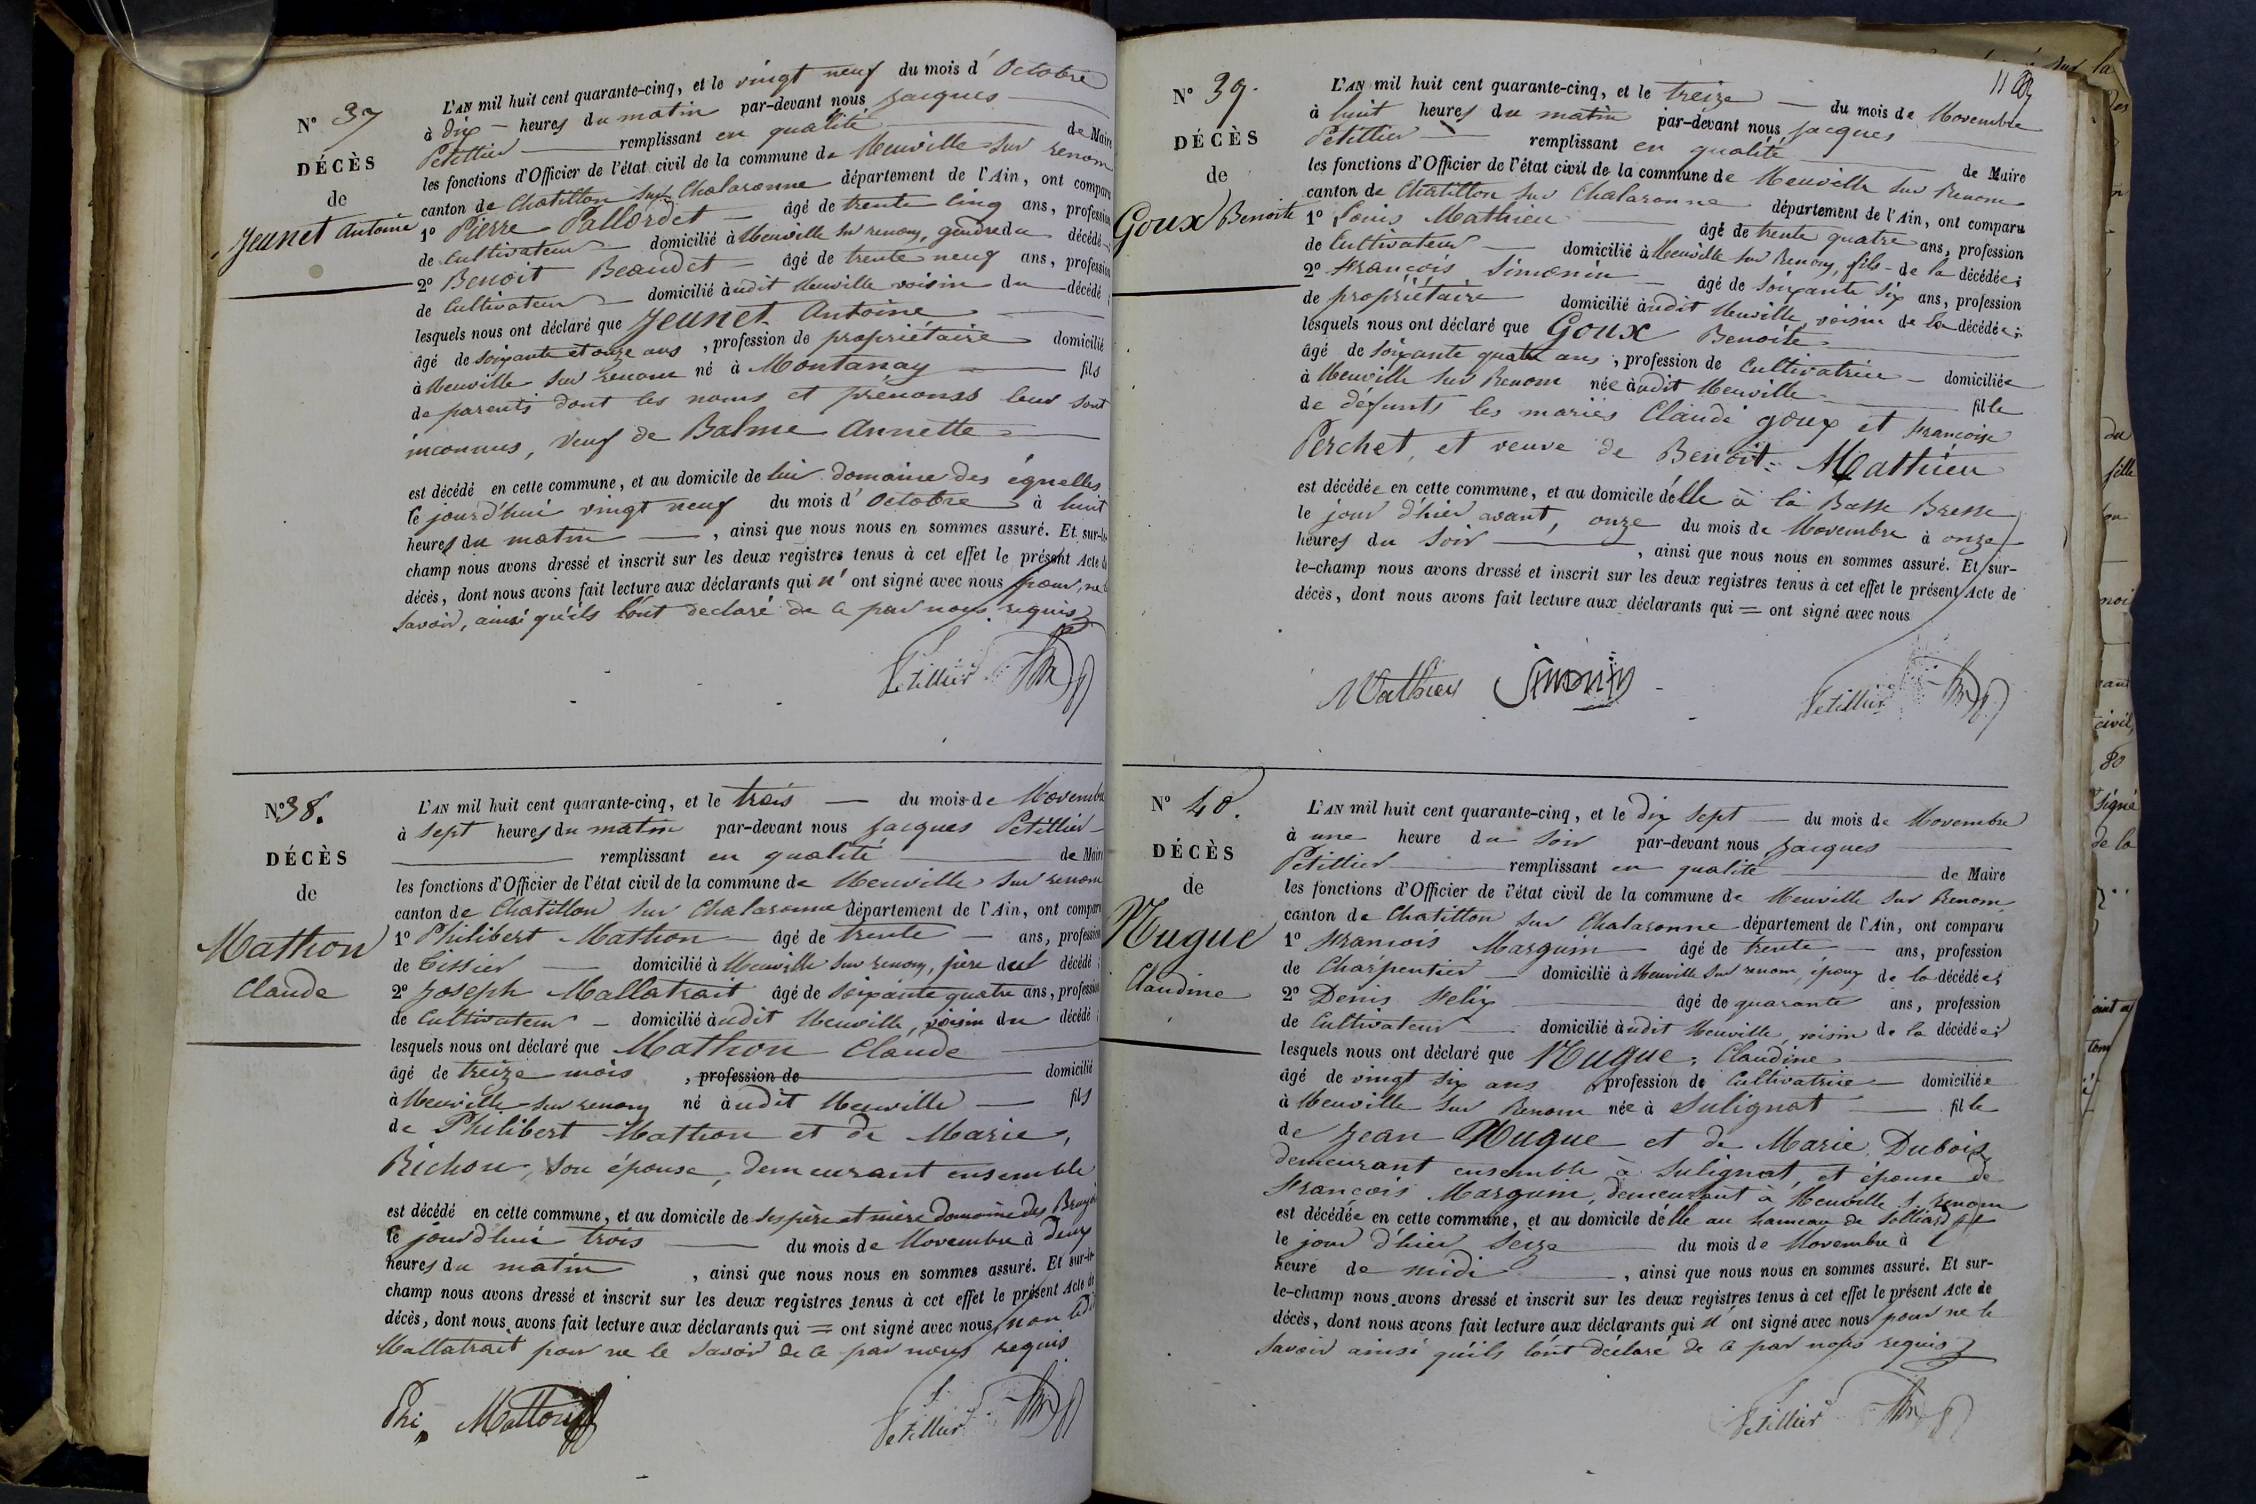 N° 37
DÉCÈS
de
Jeunet Antoine
L'AN mil huit cent quarante-cinq, et le vingt neuf du mois d'Octobre
à dix — heures du matin par-devant nous Jacques —
Petillier — remplissant en qualité — de Maire
les fonctions d'Officier de l'état civil de la commune de Neuville sur renom
canton de Chatillon sur Chalaronne département de l'Ain, ont comparu
1° Pierre Pallordet — âgé de trente cinq ans, profession
de Cultivateur — domicilié à Neuville sur renom, gendre du décédé ;
2° Benoit Beaudet — âgé de trente neuf ans, profession
de Cultivateur — domicilié audit Neuville voisin du décédé ;
lesquels nous ont déclaré que Jeunet Antoine —
âgé de soixante et onze ans, profession de propriétaire domicilié
à Neuville sur renom né à Montanay — fils
de parents dont les noms et prénoms leur sont
inconnus, veuf de Balme Annette —
est décédé en cette commune, et au domicile de lui domaine des égnelles
le jourd'hui vingt neuf du mois d'Octobre à huit
heures du matin —, ainsi que nous nous en sommes assuré. Et sur-le-
champ nous avons dressé et inscrit sur les deux registres tenus à cet effet le présent Acte de
décès, dont nous avons fait lecture aux déclarants qui n'ont signé avec nous pour ne le
savoir, ainsi qu'ils l'ont declaré de ce par nous requis
Petillier
N° 38.
DÉCÈS
de
Mathon
Claude
L'AN mil huit cent quarante-cinq, et le trois — du mois de Novembre
à sept heures du matin par-devant nous Jacques Petillier —
— remplissant en qualité — de Maire
les fonctions d'Officier de l'état civil de la commune de Neuville sur renom
canton de Chatillon sur Chalaronne département de l'Ain, ont comparu
1° Philibert Mathon — âgé de trente — ans, profession
de Tissier — domicilié à Neuville sur renom, père du décédé ;
2° Joseph Mallatrait âgé de soixante quatre ans, profession
de Cultivateur — domicilié audit Neuville, voisin du décédé ;
lesquels nous ont déclaré que Mathon Claude —
âgé de treize mois, profession de — domicilié
à Neuville sur renom né audit Neuville — fils
de Philibert Mathon et de Marie,
Richon, son épouse, demeurant ensemble
est décédé en cette commune, et au domicile de ses père et mère domaine des
le jourd'hui trois — du mois de Novembre à deux
heures du matin, ainsi que nous nous en sommes assuré. Et sur-le-
champ nous avons dressé et inscrit sur les deux registres tenus à cet effet le présent Acte de
décès, dont nous avons fait lecture aux déclarants qui = ont signé avec nous non ledit
Mallatrait pour ne le savoir de ce par nous requis
Phi Mathon
Petillier
N° 39.
DÉCÈS
de
Goux Benoite
L'AN mil huit cent quarante-cinq, et le treize — du mois de Novembre
à huit heures du matin par-devant nous Jacques —
Petillier — remplissant en qualité — de Maire
les fonctions d'Officier de l'état civil de la commune de Neuville sur Renom
canton de Chatillon sur Chalaronne département de l'Ain, ont comparu
1° Louis Mathieu — âgé de trente quatre ans, profession
de Cultivateur — domicilié à Neuville sur Renom, fils de la décédée ;
2° François Simonin — âgé de soixante six ans, profession
de propriétaire domicilié audit Neuville voisin de la décédée ;
lesquels nous ont déclaré que Goux Benoite —
âgé de soixante quatre ans, profession de Cultivatrice — domiciliée
à Neuville sur Renom née audit Neuville — fille
de défunts les mariés Claude goux et Françoise
Perchet, et veuve de Benoit Mathieu
est décédée en cette commune, et au domicile d'elle à la Basse Bresse
le jour d'hier avant, onze du mois de Novembre à onze
heures du soir —, ainsi que nous nous en sommes assuré. Et sur-
le-champ nous avons dressé et inscrit sur les deux registres tenus à cet effet le présent Acte de
décès, dont nous avons fait lecture aux déclarants qui = ont signé avec nous
Mathieu Simonin
Petillier
N° 40.
DÉCÈS
de
Nugue
Claudine
L'AN mil huit cent quarante-cinq, et le dix sept — du mois de Novembre
à une heure du soir par-devant nous Jacques —
Petillier — remplissant en qualité — de Maire
les fonctions d'Officier de l'état civil de la commune de Neuville sur Renom
canton de Chatillon sur Chalaronne département de l'Ain, ont comparu
1° François Marguin — âgé de trente — ans, profession
de Charpentier — domicilié à Neuville sur renom, époux de la décédée ;
2° Denis Felix — âgé de quarante ans, profession
de Cultivateur — domicilié audit Neuville, voisin de la décédée ;
lesquels nous ont déclaré que Nugue, Claudine —
âgé de vingt six ans, profession de Cultivatrice — domiciliée
à Neuville sur Renom née à Sulignat — fille
de Jean Nugue et de Marie Dubois
demeurant ensemble à Sulignat, et épouse de
François Marguin, demeurant à Neuville s. renom
est décédée en cette commune, et au domicile d'elle au hameau de Solliard
le jour d'hier seize — du mois de Novembre à l'
heure de midi —, ainsi que nous nous en sommes assuré. Et sur-
le-champ nous avons dressé et inscrit sur les deux registres tenus à cet effet le présent Acte de
décès, dont nous avons fait lecture aux déclarants qui n'ont signé avec nous pour ne le
savoir ainsi qu'ils l'ont déclaré de ce par nous requis
Petillier
sur la
du
fille
civil,
80
signé
de la